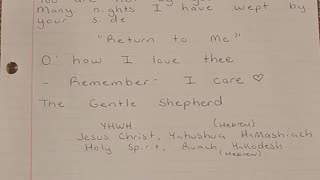 Many nights I have wept by
your side
"Return to Me"
O' how I love thee
- Remember - I care ♡
The Gentle Shepherd
YHWH (Hebrew)
Jesus Christ, Yahushua HaMashiach
Holy Spirit, Ruach HaKodesh
(Hebrew)